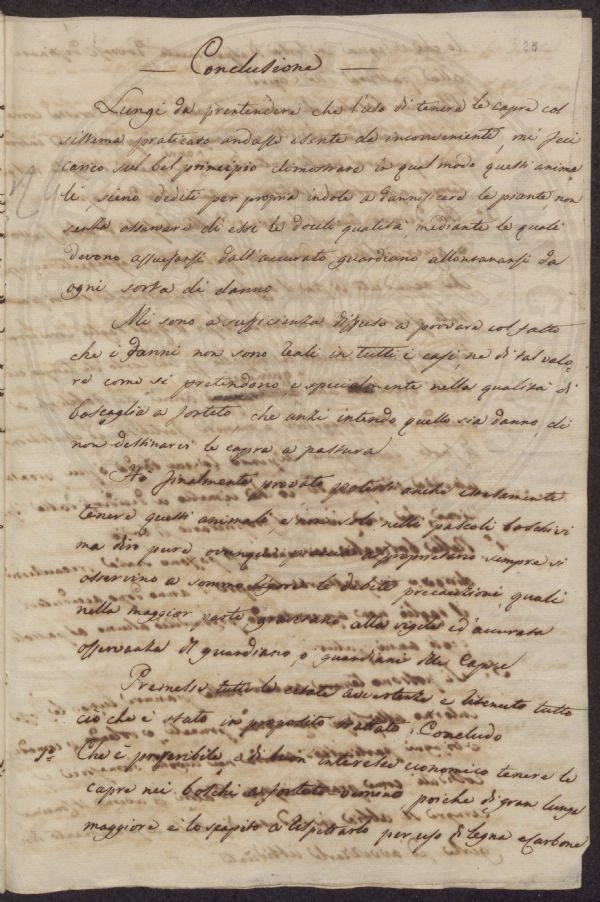 25
— Conclusione —
Lungi da prentendere che l'uso di tenere le capre col
sistema praticato andasse esente da inconvenienti, mi feci
carico sul bel principio dimostrare in qual modo questi anima=
li, sieno dediti per propria indole a dannificare le piante, non
senza osservare di essi le docili qualità, mediante le quali
devono assuefarsi dall'accurato guardiano allontanarsi da
ogni sorta di danno
Mi sono a sufficienza diffuso a provare col fatto
che i danni non sono reali in tutti i casi, ne di tal valo=
re come si pretendono e specialmente nella qualità di
boscaglia a forteto che anzi intendo quello sia danno di
non destinarvi le capre a pastura
Ho finalmente provato potersi anche esattamente
tenere questi animali, e non solo nelli pascoli boschivi
ma dirò pure ovunque proprietario sempre si
osservino a sommo rigore le debite precauzioni, quali
nella maggior parte graverano alla vigile ed accurata
osservanza di guardiano, o guardiani delle Capre
Premesse tutte le citate avvertenze e ritenuto tutto
ciò che è stato in proposito trattato, Concludo
1° Che è preferibile, e di buon interesse economico tenere le
capre nei boschi a forteto poiche di gran lunga
maggiore e lo scapito a rispettarlo per uso di legna e Carbone